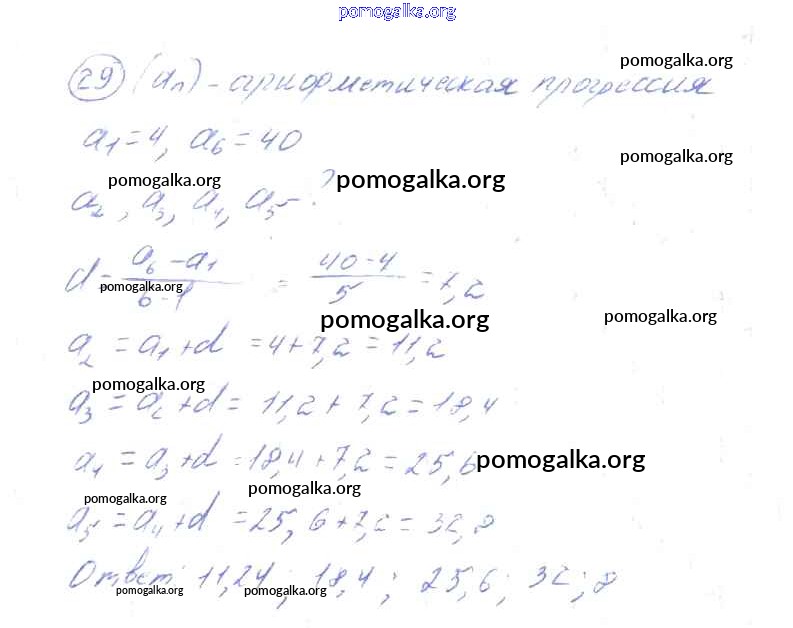 pomogalka.org
pomogalka.org
29 (an) - арифметическая прогрессия
a1 = 4, a6 = 40
pomogalka.org
pomogalka.org
pomogalka.org
a2, a3, a4, a5 - ?
d = a6 - a1 / 6 - 1 = 40 - 4 / 5 = 7,2
pomogalka.org
pomogalka.org
pomogalka.org
a2 = a1 + d = 4 + 7,2 = 11,2
pomogalka.org
a3 = a2 + d = 11,2 + 7,2 = 18,4
a4 = a3 + d = 18,4 + 7,2 = 25,6
pomogalka.org
pomogalka.org
pomogalka.org
a5 = a4 + d = 25,6 + 7,2 = 32,8
Ответ: 11,24; 18,4; 25,6; 32;8
pomogalka.org
pomogalka.org